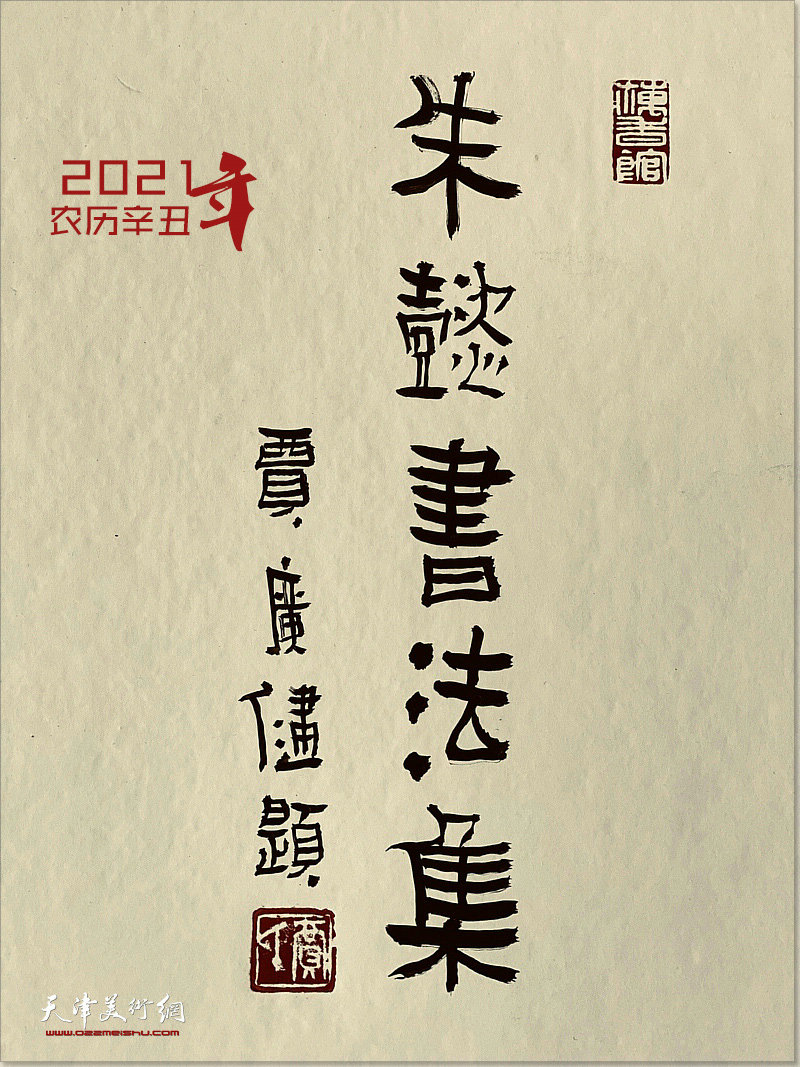 朱懿書法集
賈廣健題
2021年
农历辛丑
天津美術網
www.022meishu.com